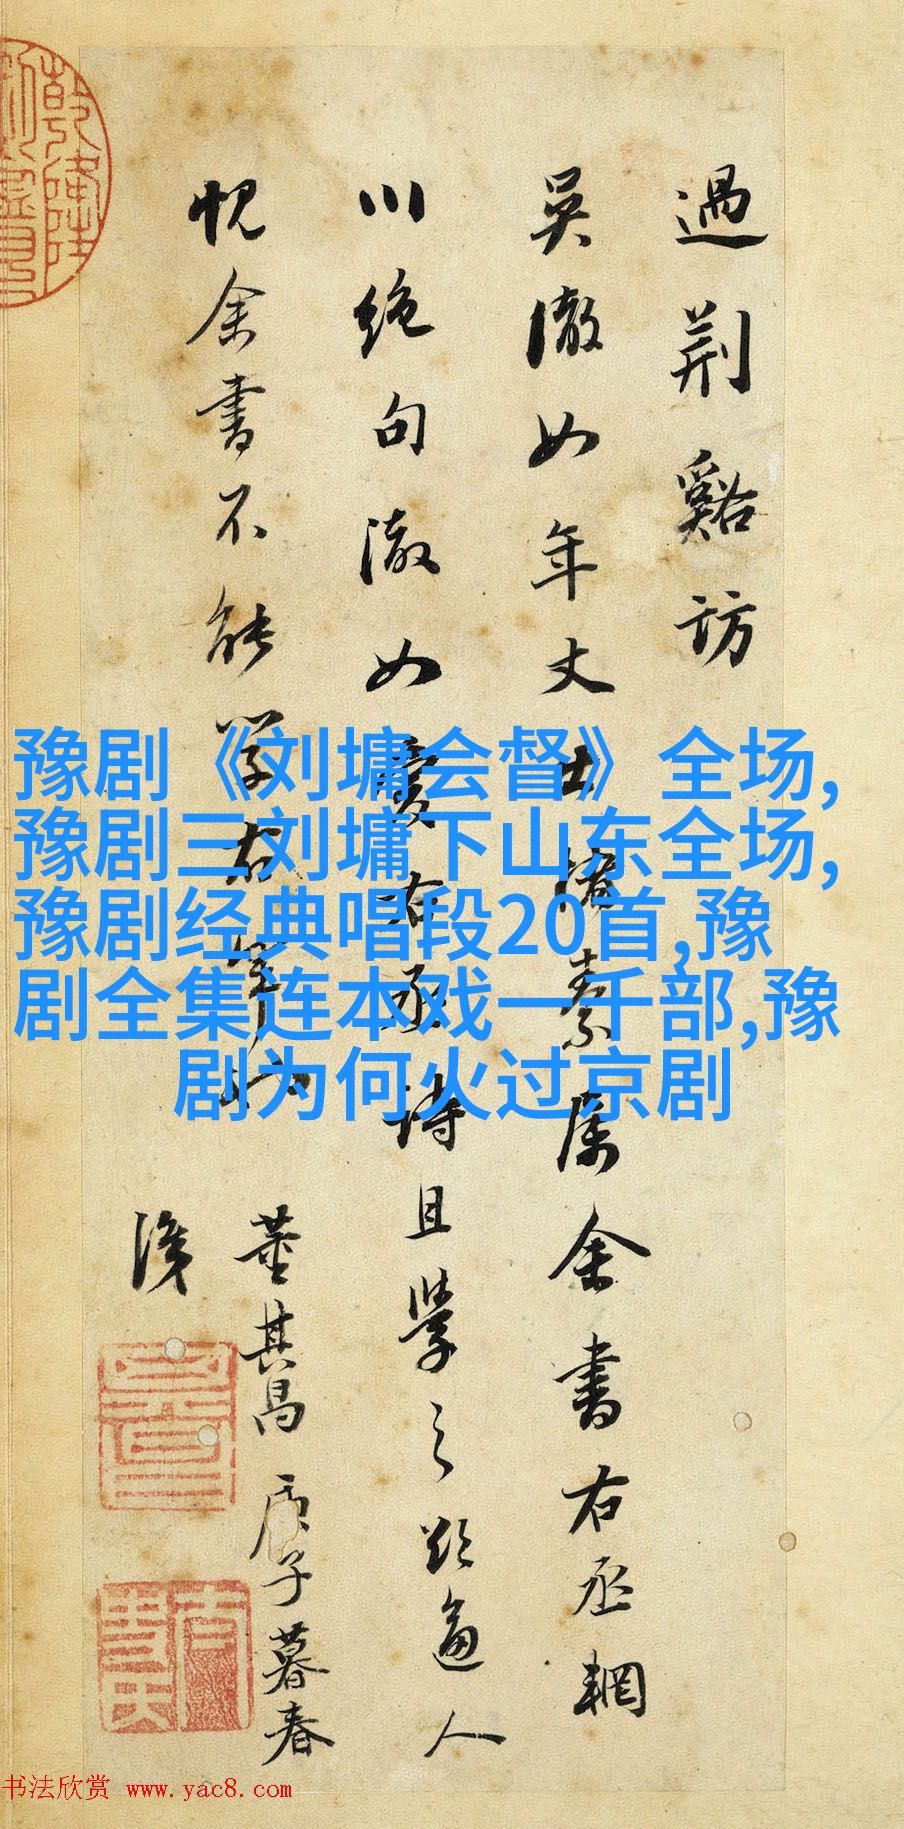 過荆谿訪
吳澈如年丈出素属余書右丞輞
川絶句澈如愛右丞詩且學之欲逼人
愧余書不能學右軍
董其昌 庚子暮春
識
豫剧《刘墉会督》全场,
豫剧三刘墉下山东全场,
豫剧经典唱段20首,豫
剧全集连本戏一千部,豫
剧为何火过京剧
书法欣赏 www.yac8.com